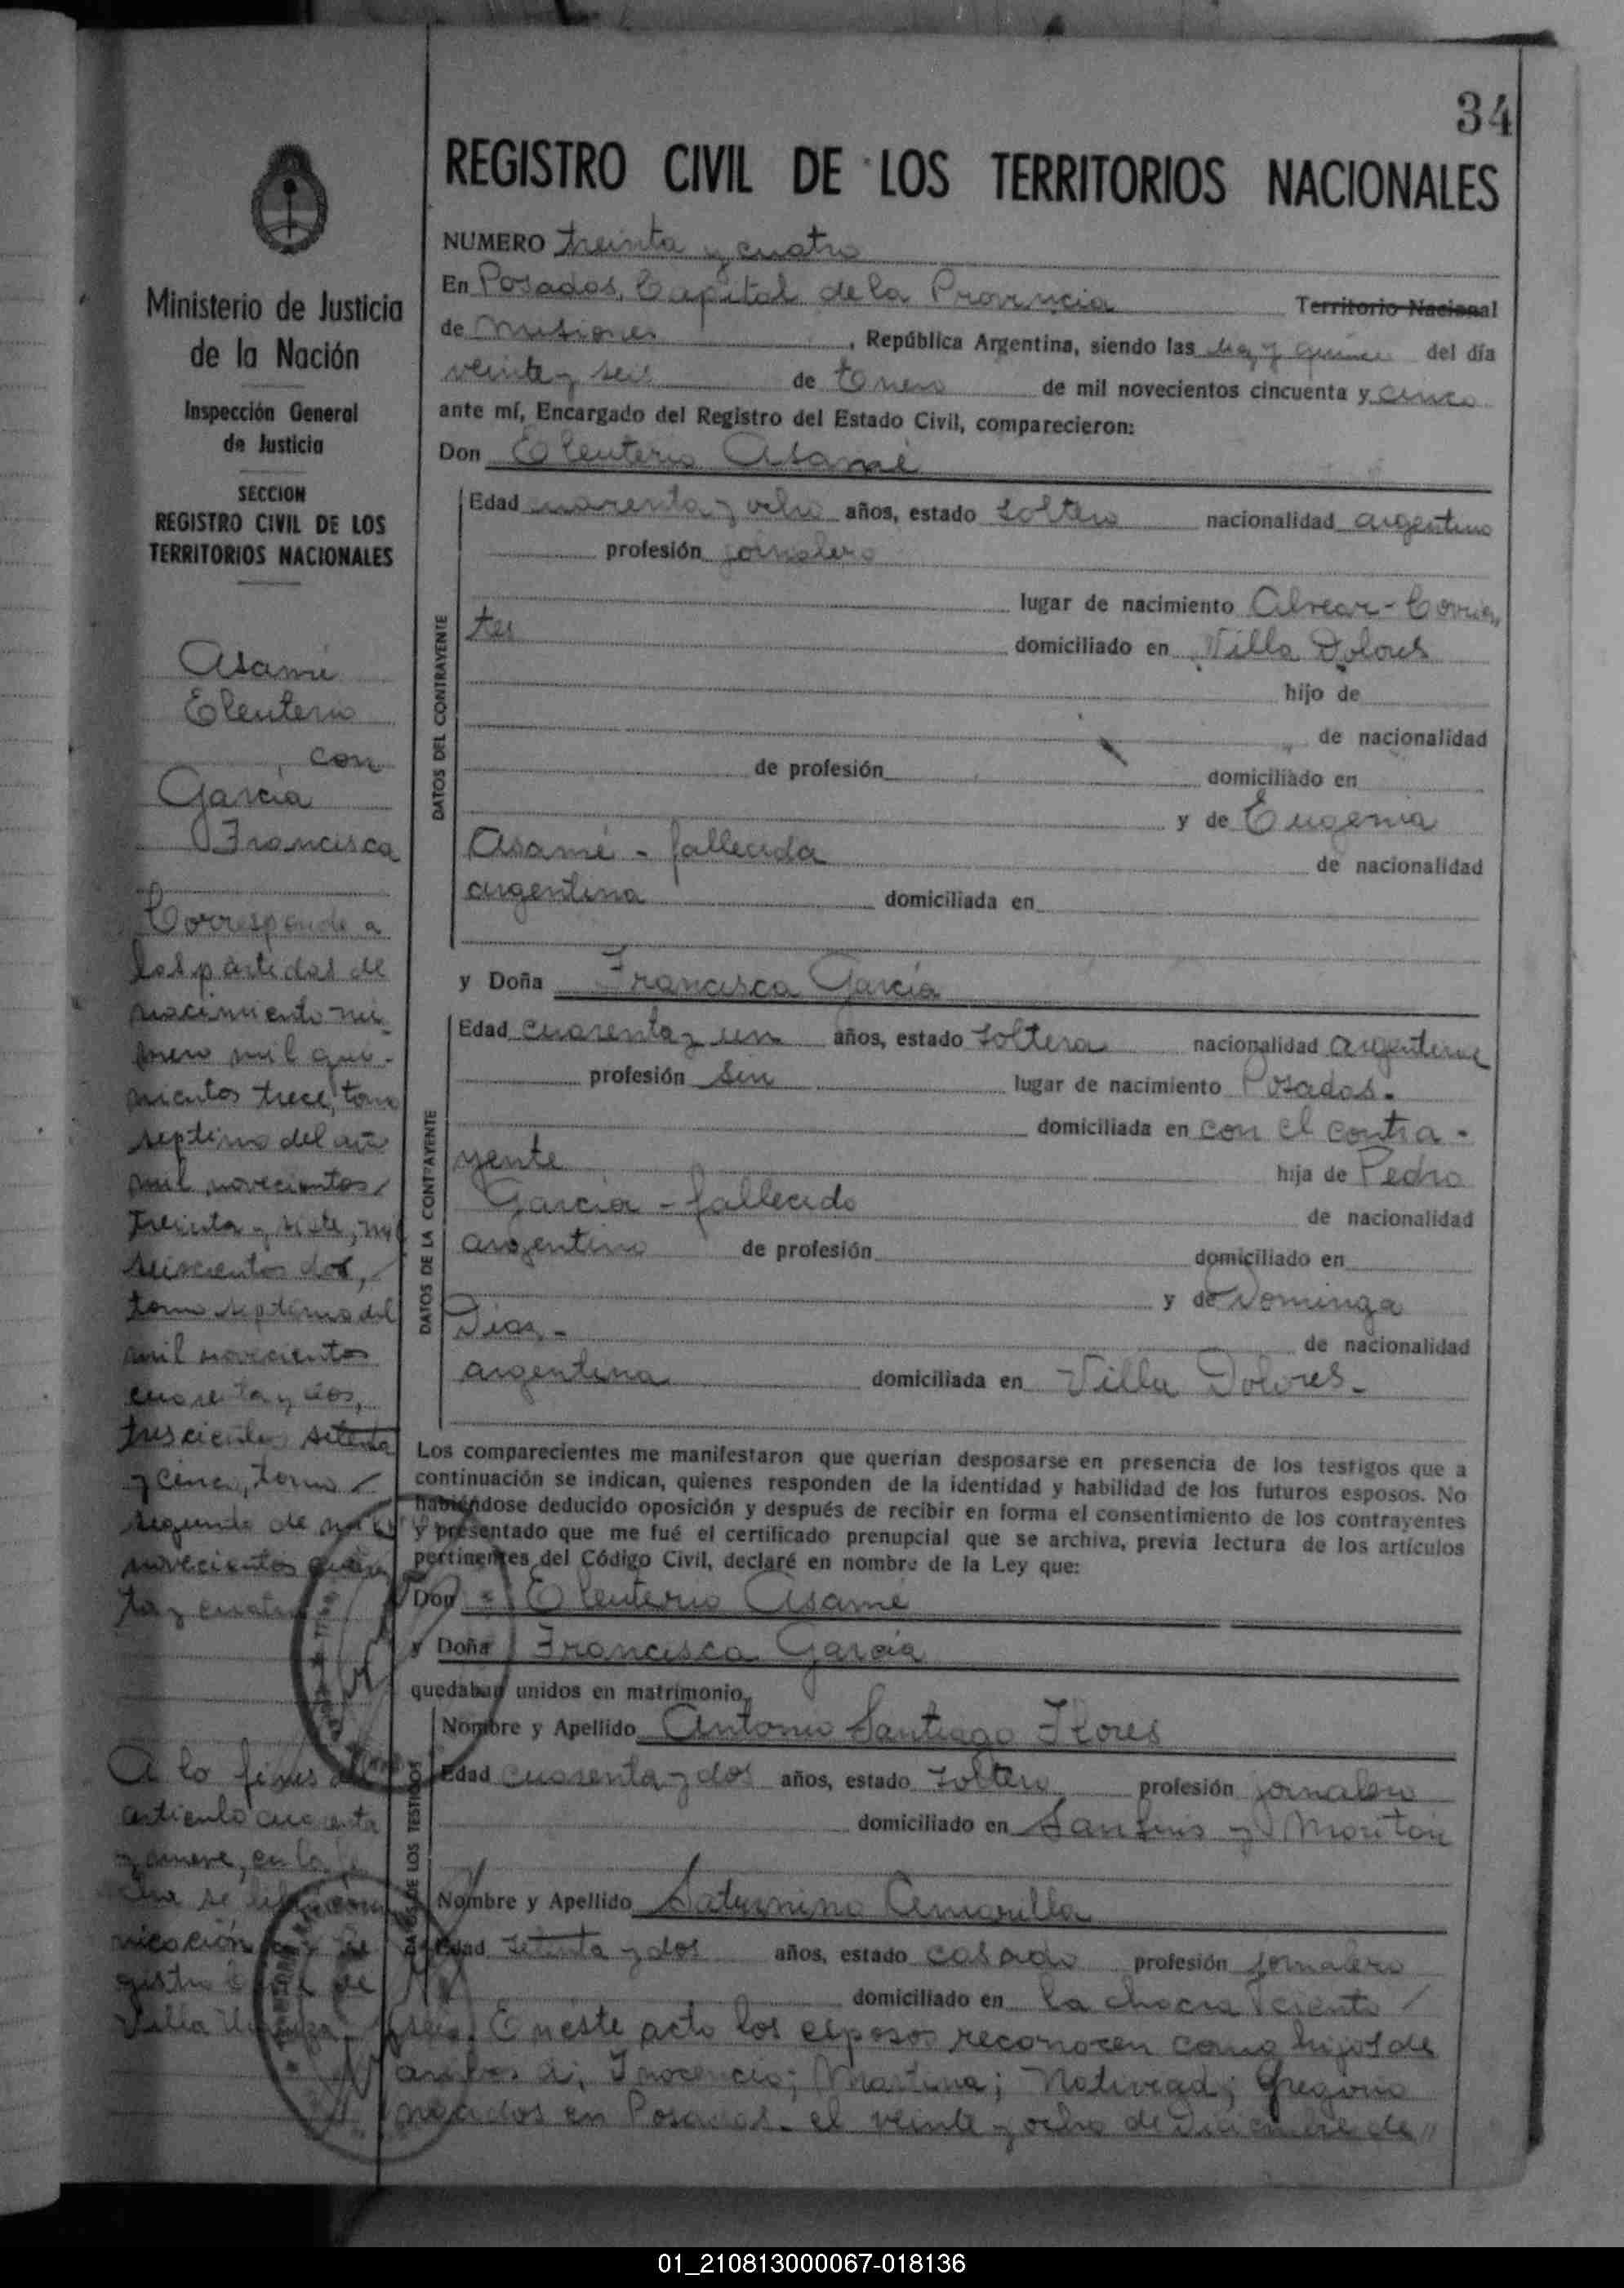 34
REGISTRO CIVIL DE LOS TERRITORIOS NACIONALES
Ministerio de Justicia
de la Nación
Inspección General
de Justicia
SECCION
REGISTRO CIVIL DE LOS
TERRITORIOS NACIONALES
Asamé
Eleuterio
con
García
Francisca
Corresponde a
las partidas de
nacimiento nú-
mero mil qui-
nientos trece, tomo
septimo del año
mil novecientos
treinta y siete, mil
seiscientos dos,
tomo septimo del
mil novecientos
cuarenta y dos,
trescientos setenta
y cinco, tomo
segundo de mil
novecientos cuaren
ta y cuatro
A lo fines del
articulo cuarenta
y nueve, en la fe
cha se libró comu
nicación al Re
gistro Civil de
Villa
NUMERO treinta y cuatro
En Posadas, Capital de la Provincia Territorio Nacional
de Misiones, República Argentina, siendo las diez y quince del día
veinte y seis de Enero de mil novecientos cincuenta y cinco
ante mí, Encargado del Registro del Estado Civil, comparecieron:
Don Eleuterio Asamé
DATOS DEL CONTRAYENTE
Edad cuarenta y ocho años, estado soltero nacionalidad argentino
profesión jornalero
lugar de nacimiento Alvear - Corrien
tes domiciliado en Villa Dolores
hijo de
de nacionalidad
de profesión domiciliado en
y de Eugenia
Asamé - fallecida de nacionalidad
argentina domiciliada en
y Doña Francisca García
DATOS DE LA CONTRAYENTE
Edad cuarenta y un años, estado soltera nacionalidad argentina
profesión sin lugar de nacimiento Posadas.
domiciliada en con el contra-
yente hija de Pedro
García - fallecido de nacionalidad
argentino de profesión domiciliado en
y de Dominga
Diaz - de nacionalidad
argentina domiciliada en Villa Dolores.
Los comparecientes me manifestaron que querían desposarse en presencia de los testigos que a
continuación se indican, quienes responden de la identidad y habilidad de los futuros esposos. No
habiéndose deducido oposición y después de recibir en forma el consentimiento de los contrayentes
y presentado que me fué el certificado prenupcial que se archiva, previa lectura de los artículos
pertinentes del Código Civil, declaré en nombre de la Ley que:
Don Eleuterio Asamé
y Doña Francisca García
quedaban unidos en matrimonio.
DATOS DE LOS TESTIGOS
Nombre y Apellido Antonio Santiago Flores
Edad cuarenta y dos años, estado soltero profesión jornalero
domiciliado en San Luis y
Nombre y Apellido Saturnino Amarilla
Edad setenta y dos años, estado casado profesión jornalero
domiciliado en la chacra ciento
seis. En este acto los esposos reconocen como hijos de
ambos a; Inocencio; Martina; Natividad; Gregorio
nacidos en Posadas. el veinte y ocho de Diciembre de
01_210813000067-018136